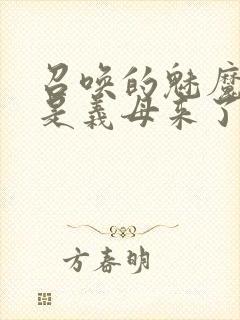 召唤的魅魔
是义母来了
方春明